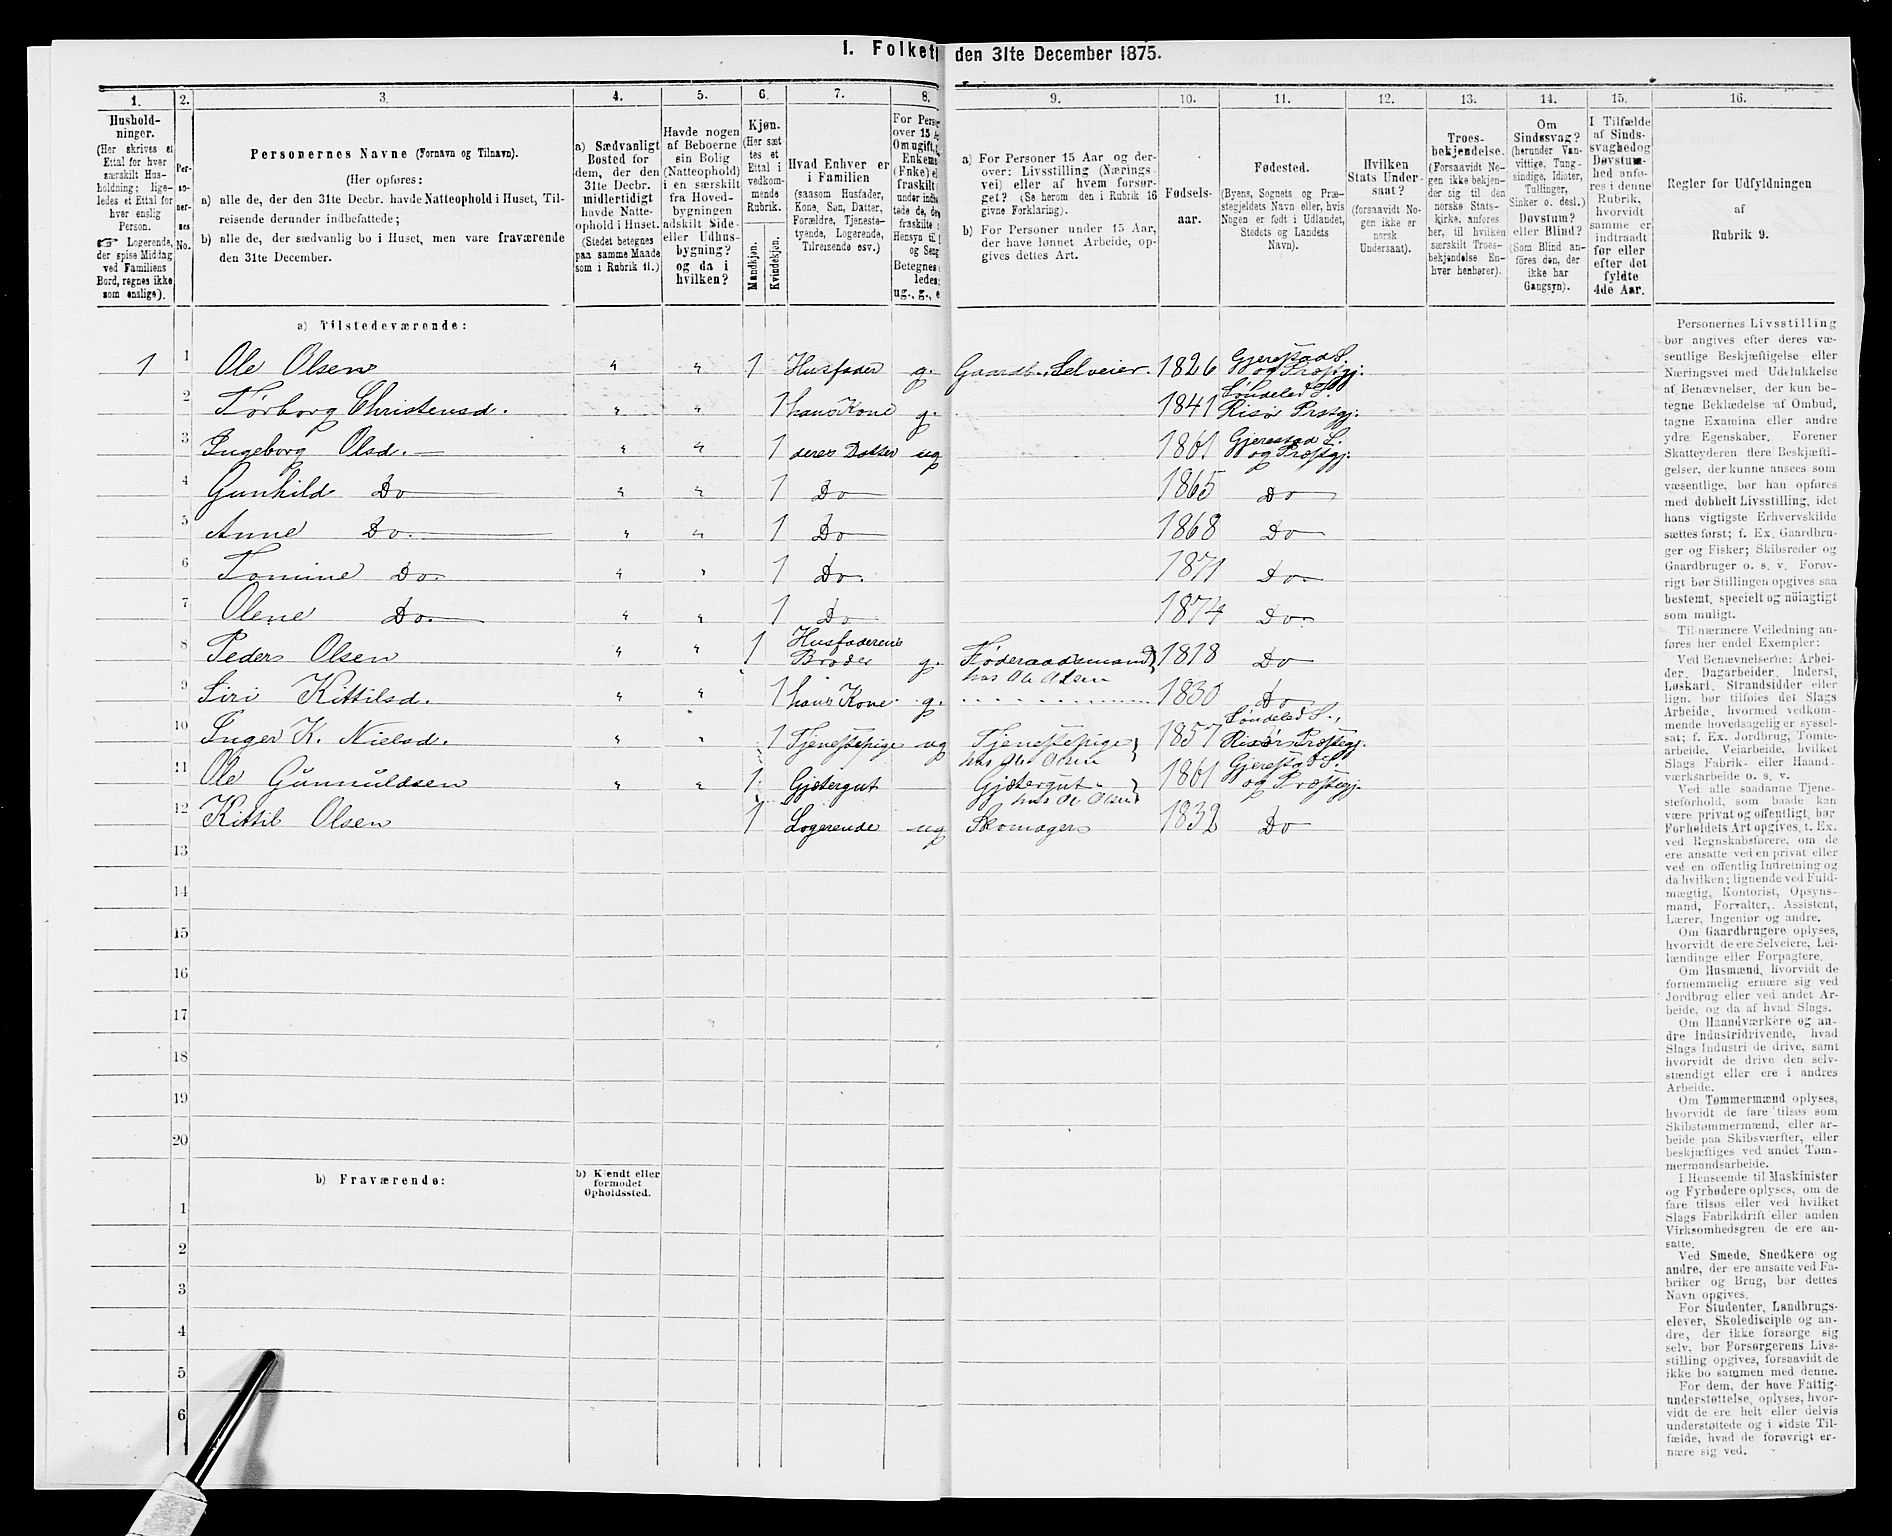 1. Folket
den 31te December 1875.
1. 2. 3. 4. 5. 6. 7. 8. 9. 10. 11. 12. 13. 14. 15. 16.
Hushold-
ninger.
(Her skrives et
Ettal for hver
særskilt Hus-
holdning; lige-
ledes et Ettal for
hver enslig
Person.
☞ Logerende,
der spise Middag
ved Familiens
Bord, regnes ikke
som enslige).
Per-
so-
ner-
nes
No.
Personernes Navne (Fornavn og Tilnavn).
(Her opføres:
a) alle de, der den 31te Decbr. havde Natteophold i Huset, Til-
reisende derunder indbefattede;
b) alle de, der sædvanlig bo i Huset, men vare fraværende
den 31te December.
a) Sædvanligt
Bosted for
dem, der den
31te Decbr.
midlertidigt
havde Natte-
ophold i Huset.
(Stedet betegnes
paa samme Maade
som i Rubrik 11.)
Havde nogen
af Beboerne
sin Bolig
(Natteophold)
i en særskilt
fra Hoved-
bygningen
adskilt Side-
eller Udhus-
bygning?
og da i
hvilken?
Kjøn.
(Her sæt-
tes et
Ettal i
vedkom-
mende
Rubrik.
Mandkjøn.
Kvindekjøn.
Hvad Enhver er
i Familien
(saasom Husfader,
Kone, Søn, Datter,
Forældre, Tjeneste-
tyende, Logerende,
Tilreisende osv.)
For Perso
over 15 A
Om ugift,
Enkema
(Enke) el
fraskilt
under indbe
tede de, de
fraskilte
Hensyn til
og Seng
Betegnes
ledes:
ug., g., e
a) For Personer 15 Aar og der-
over: Livsstilling (Nærings-
vei) eller af hvem forsør-
get? (Se herom den i Rubrik 16
givne Forklaring).
b) For Personer under 15 Aar,
der have lønnet Arbeide, op-
gives dettes Art.
Fødsels-
aar.
Fødested.
(Byens, Sognets og Præ-
stegjeldets Navn eller, hvis
Nogen er født i Udlandet,
Stedets og Landets
Navn).
Hvilken
Stats Under-
saat?
(forsaavidt No-
gen ikke er
norsk
Undersaat).
Troes-
bekjendelse.
(Forsaavidt No-
gen ikke bekjen-
der sig til den
norske Stats-
kirke, anføres
her, til hvilken
særskilt Troes-
bekjendelse En-
hver henhører).
Om
Sindssvag?
(herunder Van-
vittige, Tung-
sindige, Idioter,
Tullinger,
Sinker o. desl.)
Døvstum?
eller Blind?
(Som Blind an-
føres den, der
ikke har
Gangsyn).
I Tilfælde
af Sinds-
svaghed og
Døvstum-
hed anfø-
res i denne
Rubrik,
hvorvidt
samme er
indtraadt
før eller
efter det
fyldte
4de Aar.
Regler for Udfyldningen
af
Rubrik 9.
a) Tilstedeværende:
1 1 Ole Olsen " " 1 Husfader g. Gaardb. Selveier. 1826 Gjerestad S. og Præstgj.
2 Torborg Christensd. " " 1 hans Kone g. 1841 Søndeled S. Risør Prstgj.
3 Ingeborg Olsd. " " 1 deres Datter ug 1861 Gjerestad S. og Præstgj.
4 Gunhild Do " " 1 Do 1865 Do
5 Anne Do. " " 1 Do 1868 Do
6 Tomine Do " " 1 Do. 1871 Do
7 Olene Do. " " 1 Do 1874 Do.
8 Peder Olsen " " 1 Husfaderens Broder g. Føderaadsmand hos Ole Olsen 1818 Do
9 Siri Kittilsd. " " 1 hans Kone. g. 1830 Do
10 Inger K. Nielsd. " " 1 Tjenestepige ug Tjenestepige hos Ole Olsen 1857 Søndeled S., Risør Præstegj.
11 Ole Gunnuldsen " " 1 Gjætergut Gjætergut hos Ole Olsen 1861 Gjerestad S. og Præstegj.
12 Kittil Olsen 1 Logerende ug Skomager 1832 Do
13
14
15
16
17
18
19
20
b) Fraværende:
b) Kjendt eller
formodet
Opholdssted.
1
2
3
4
5
6
Personernes Livsstilling
bør angives efter deres væ-
sentlige Beskjæftigelse eller
Næringsvei med Udelukkelse
af Benævnelser, der kun be-
tegne Beklædelse af Ombud,
tagne Examina eller andre
ydre Egenskaber. Forener
Skatteyderen flere Beskjæfti-
gelser, der kunne ansees som
væsentlige, bør han opføres
med dobbelt Livsstilling, idet
hans vigtigste Erhvervskilde
sættes først; f. Ex. Gaardbru-
ger og Fisker; Skibsreder og
Gaardbruger o. s. v. Forøv-
rigt bør Stillingen opgives saa
bestemt, specielt og nöiagtigt
som muligt.
Til nærmere Veiledning an-
føres her endel Exempler:
Ved Benævnelserne: Arbei-
der, Dagarbeider, Inderst,
Løskarl, Strandsidder eller
lign. bør tilføies det Slags
Arbeide, hvormed vedkom-
mende hovedsagelig er syssel-
sat; f. Ex. Jordbrug, Tomte-
arbeide, Veiarbeide, hvilket
Slags Fabrik- eller Haand-
værksarbeide o. s. v.
Ved alle saadanne Tjene-
steforhold, som baade kan
være privat og offentligt, bør
Forholdets Art opgives, t. Ex.
ved Regnskabsførere, om de
ere ansatte ved en privat eller
ved en offentlig Indretning og
da hvilken; lignende ved Fuld-
mægtig, Kontorist, Opsyns-
mand, Forvalter, Assistent,
Lærer, Ingeniør og andre.
Om Gaardbrugere oplyses,
hvorvidt de ere Selveiere, Lei-
lændinge eller Forpagtere.
Om Husmænd, hvorvidt de
fornemmelig ernære sig ved
Jordbrug eller ved andet Ar-
beide, og da af hvad Slags.
Om Haandværkere og an-
dre Industridrivende, hvad
Slags Industri de drive, samt
hvorvidt de drive den selv-
stændigt eller ere i andres
Arbeide.
Om Tømmermænd oplyses,
hvorvidt de fare tilsøs som
Skibstømmermænd, eller ar-
beide paa Skibsværfter, eller
beskjæftiges ved andet Tøm-
mermandsarbeide.
I Henseende til Maskinister
og Fyrbødere oplyses, om de
fare tilsøs eller ved hvilket
Slags Fabrikdrift eller anden
Virksomhedsgren de ere an-
satte.
Ved Smede, Snedkere og
andre, der ere ansatte ved Fa-
briker og Brug, bør dettes
Navn opgives.
For Studenter, Landbrugs-
elever, Skoledisciple og an-
dre, der ikke forsørge sig
selv, bør Forsørgerens Livs-
stilling opgives, forsaavidt de
ikke bo sammen med denne.
For dem, der have Fattig-
understøttelse, oplyses, hvor-
vidt de ere helt eller delvis
understøttede og i sidste Til-
fælde, hvad de forøvrigt er-
nære sig ved.